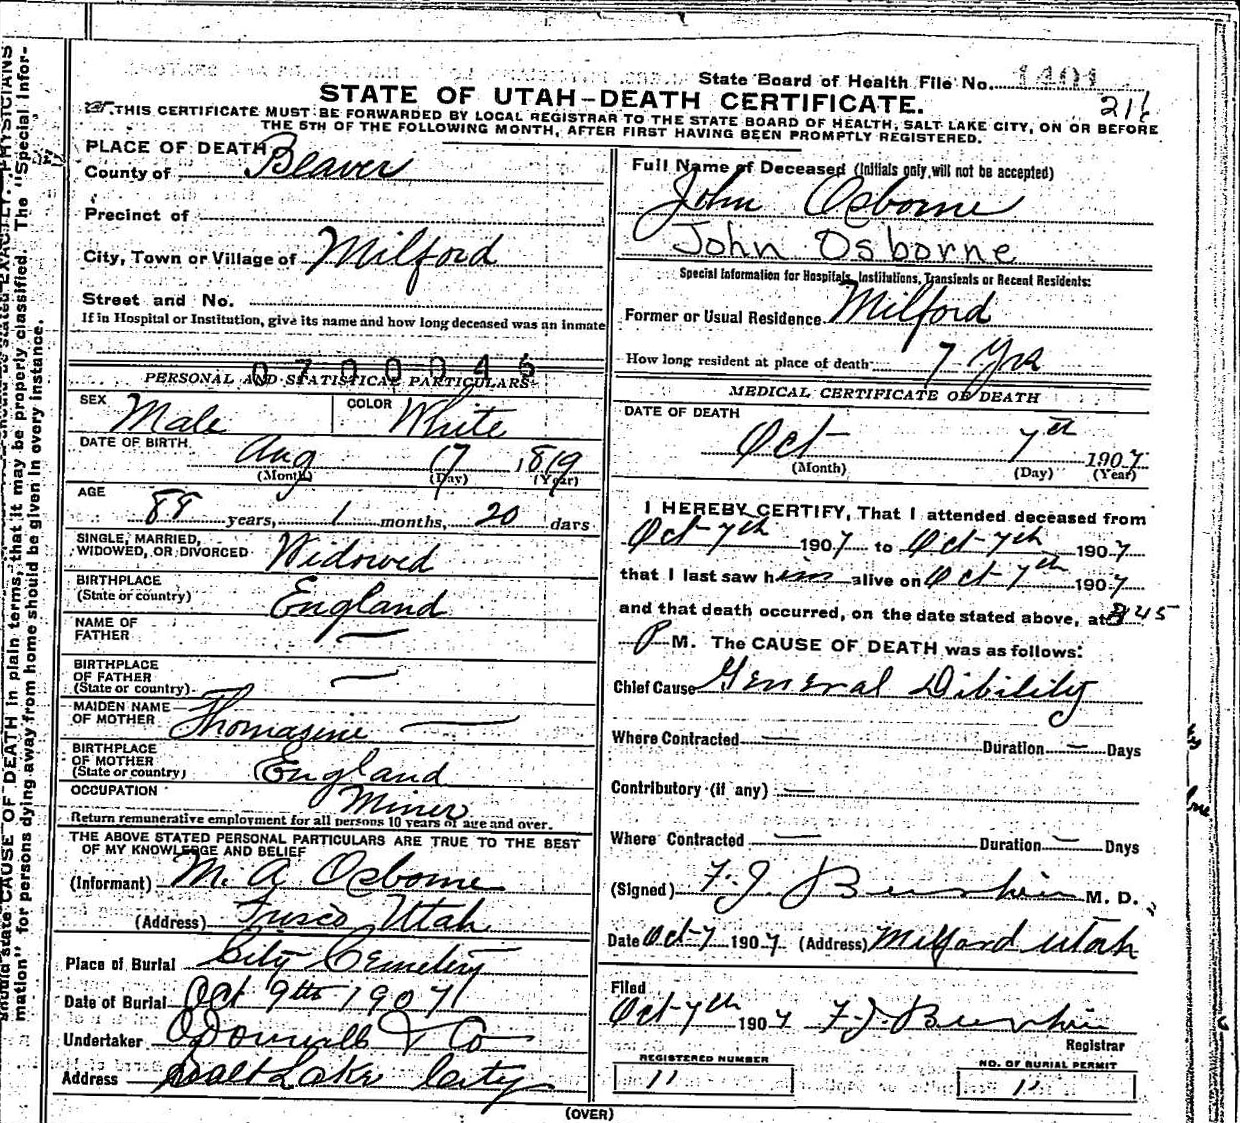 State Board of Health File No. 1401
216
STATE OF UTAH-DEATH CERTIFICATE.
THIS CERTIFICATE MUST BE FORWARDED BY LOCAL REGISTRAR TO THE STATE BOARD OF HEALTH, SALT LAKE CITY, ON OR BEFORE
THE 5TH OF THE FOLLOWING MONTH, AFTER FIRST HAVING BEEN PROMPTLY REGISTERED.
PLACE OF DEATH
County of Beaver
Precinct of
City, Town or Village of Milford
Street and No.
If in Hospital or Institution, give its name and how long deceased was an inmate
0700046
PERSONAL AND STATISTICAL PARTICULARS
SEX Male COLOR White
DATE OF BIRTH. Aug 17 1819
(Month) (Day) (Year)
AGE 88 years, 1 months, 20 days
SINGLE, MARRIED,
WIDOWED, OR DIVORCED Widowed
BIRTHPLACE
(State or country) England
NAME OF
FATHER —
BIRTHPLACE
OF FATHER
(State or country) —
MAIDEN NAME
OF MOTHER Thomazine —
BIRTHPLACE
OF MOTHER
(State or country) England
OCCUPATION Miner
Return remunerative employment for all persons 10 years of age and over.
THE ABOVE STATED PERSONAL PARTICULARS ARE TRUE TO THE BEST
OF MY KNOWLEDGE AND BELIEF
(Informant) M. A Osborne
(Address) Frisco Utah
Place of Burial City Cemetery
Date of Burial Oct 9th 1907
Undertaker O'Donnell & Co
Address Salt Lake City
Full Name of Deceased (Initials only will not be accepted)
John Osborne
John Osborne
Special Information for Hospitals, Institutions, Transients or Recent Residents:
Former or Usual Residence Milford
How long resident at place of death 7 Yrs
MEDICAL CERTIFICATE OF DEATH
DATE OF DEATH
Oct 7th 1907
(Month) (Day) (Year)
I HEREBY CERTIFY, That I attended deceased from
Oct 7th 1907 to Oct 7th 1907
that I last saw him alive on Oct 7th 1907
and that death occurred, on the date stated above, at 8 45
P M. The CAUSE OF DEATH was as follows:
Chief Cause General Dibility
Where Contracted — Duration — Days
Contributory (if any) —
Where Contracted — Duration — Days
(Signed) F. J. M. D.
Date Oct 7 1907 (Address) Milford Utah
Filed
Oct 7th 1907 F. J.
Registrar
REGISTERED NUMBER
11
NO. OF BURIAL PERMIT
11
(OVER)
CAUSE OF DEATH in plain terms, that it may be properly classified. The "Special Infor-
mation" for persons dying away from home should be given in every instance.